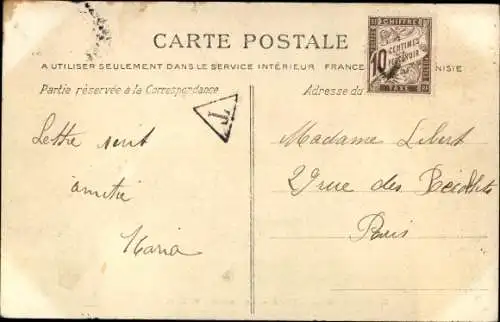 CARTE POSTALE
A UTILISER SEULEMENT DANS LE SERVICE INTÉRIEUR. FRANCE NISIE
Partie réservée à la Correspondance
Adresse du
CHIFFRE
10 CENTIMES
A PERCEVOIR
TAXE
T
Lettre suit
amitié
Maria
Madame Libert
29 rue des
Paris